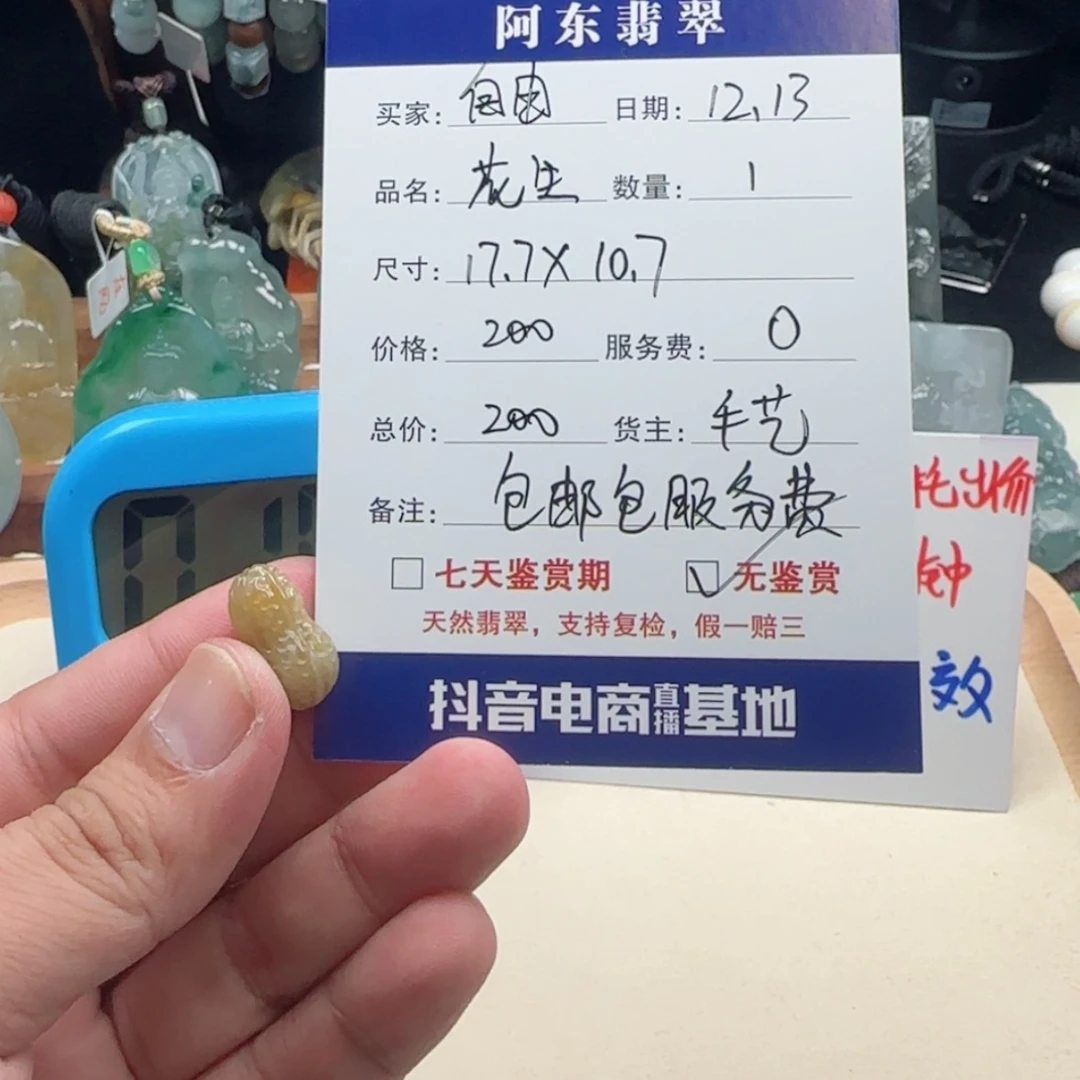 阿东翡翠
买家: 日期: 12.13
品名: 花生 数量: 1
尺寸: 17.7X10.7
价格: 200 服务费: 0
总价: 200 货主: 手艺
备注: 包邮包服务费
七天鉴赏期 无鉴赏
天然翡翠，支持复检，假一赔三
抖音电商直播基地
出价
钟
效